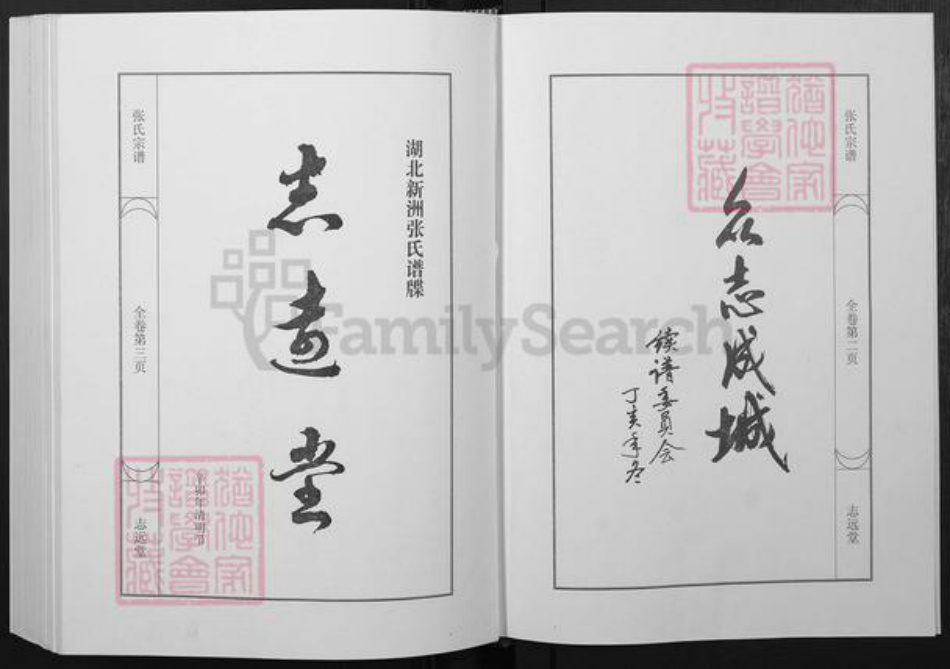 张氏宗谱
全卷第二页
志远堂
众志成城
续谱委员会
丁亥年冬
湖北新洲张氏谱牒
志远堂
辛卯年清明节
张氏宗谱
全卷第三页
志远堂
猶他家
譜學會
收藏
猶他家
譜學會
收藏
FamilySearch